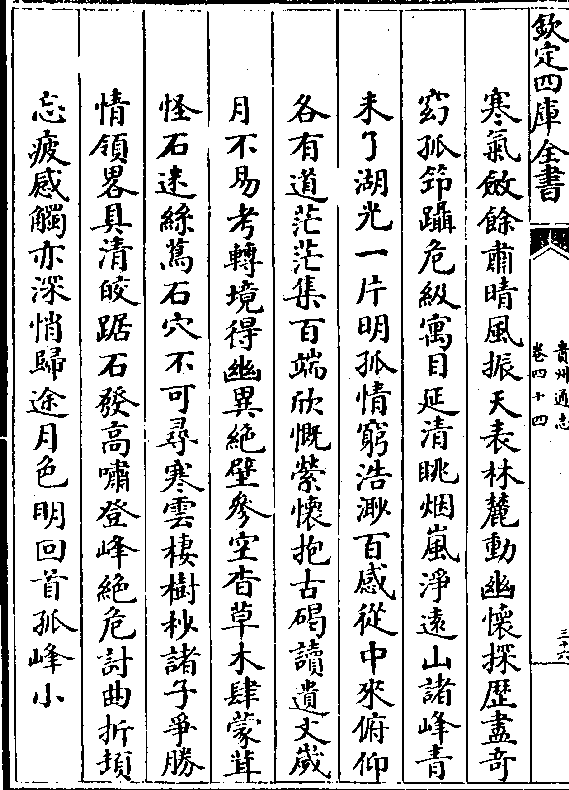 欽定四庫全書
貴州通志
卷四十四
三十六
寒氣斂餘肅晴風振天表林麓動幽懷探歴盡奇
窈孤筇躡危級寓目延清眺烟嵐淨遠山諸峰青
未了湖光一片明孤情窮浩渺百感從中來俯仰
各有道茫茫集百端欣慨縈懷抱古碣讀遺文歲
月不易考轉境得幽異絶壁參空杳草木肆蒙茸
怪石迷絲蔦石穴不可尋寒雲棲樹杪諸子爭勝
情領畧具清皎踞石發高嘯登峰絶危討曲折頓
忘疲感觸亦深悄歸途月色明回首孤峰小